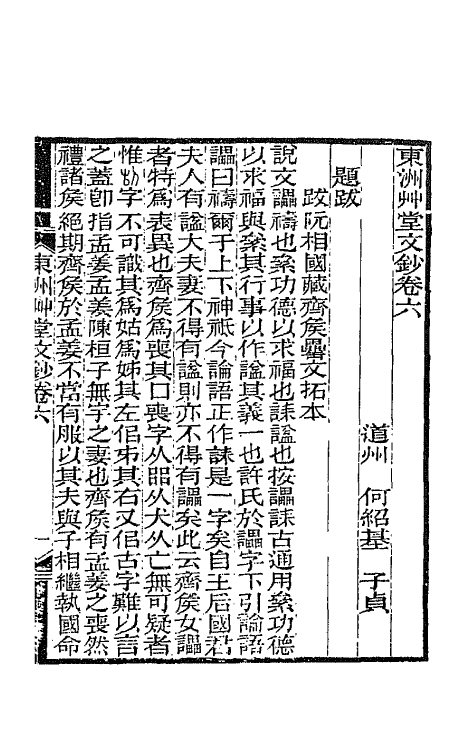 東洲艸堂文鈔卷六
道州　何紹基　子貞
題跋
跋阮相國藏齊矦罍文拓本
說文讄禱也絫功德以求福也誄謚也按讄誄古通用絫功德
以求福與絫其行事以作謚其義一也許氏於讄字下引論語
讄曰禱爾于上下神祇今論語正作誄是一字矣自王后國君
夫人有謚大夫妻不得有謚則亦不得有讄矣此云齊矦女讄
者特爲表異也齊矦爲喪其口喪字从㗊从犬从亡無可疑者
惟字不可識其爲姑爲姊其左佀其右又佀古字難以言
之蓋卽指孟姜孟姜陳桓子無宇之妻也齊矦有孟姜之喪然
禮諸矦絕期齊矦於孟姜不當有服以其夫與子相繼執國命
東洲艸堂文鈔卷六
一